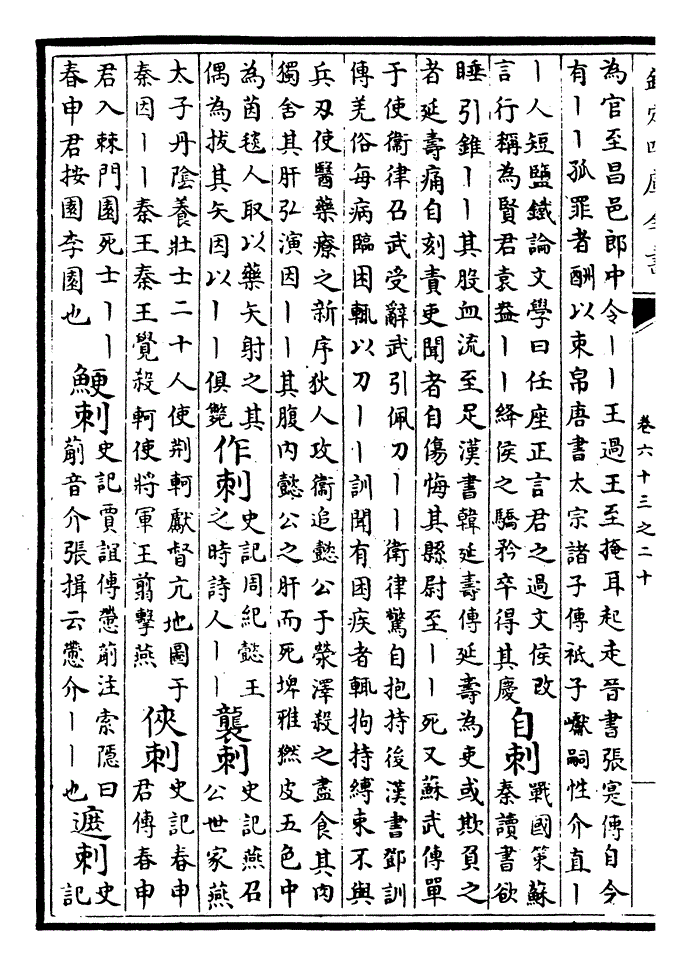 欽定四庫全書
卷六十三之二十
為官至昌邑郎中令丨丨王過王至掩耳起走晉書張寔傳自今
有丨丨孤罪者酬以束帛唐書太宗諸子傳祗子巘嗣性介直丨
丨人短鹽鐵論文學曰任座正言君之過文侯改
言行稱為賢君袁盎丨丨絳侯之驕矜卒得其慶
自刺
戰國策蘇
秦讀書欲
睡引錐丨丨其股血流至足漢書韓延壽傳延壽為吏或欺負之
者延壽痛自刻責吏聞者自傷悔其縣尉至丨丨死又蘇武傳單
于使衛律召武受辭武引佩刀丨丨衛律驚自抱持後漢書鄧訓
傳羌俗每病臨困輒以刀丨丨訓聞有困疾者輒拘持縛束不與
兵刃使醫藥療之新序狄人攻衛追懿公于滎澤殺之盡食其肉
獨舍其肝弘演因丨丨其腹内懿公之肝而死埤雅皮五色中
為茵毯人取以藥矢射之其
偶為拔其矢因以丨丨俱斃
作刺
史記周紀懿王
之時詩人丨丨
襲刺
史記燕召
公世家燕
太子丹陰養壯士二十人使荆軻獻督亢地圖于
秦因丨丨秦王秦王覺殺軻使將軍王翦擊燕
俠刺
史記春申
君傳春申
君入棘門園死士丨丨
春申君按園李園也
鯁刺
史記賈誼傳懘葪注索隱曰
葪音介張揖云懘介丨丨也
遮刺
史
記